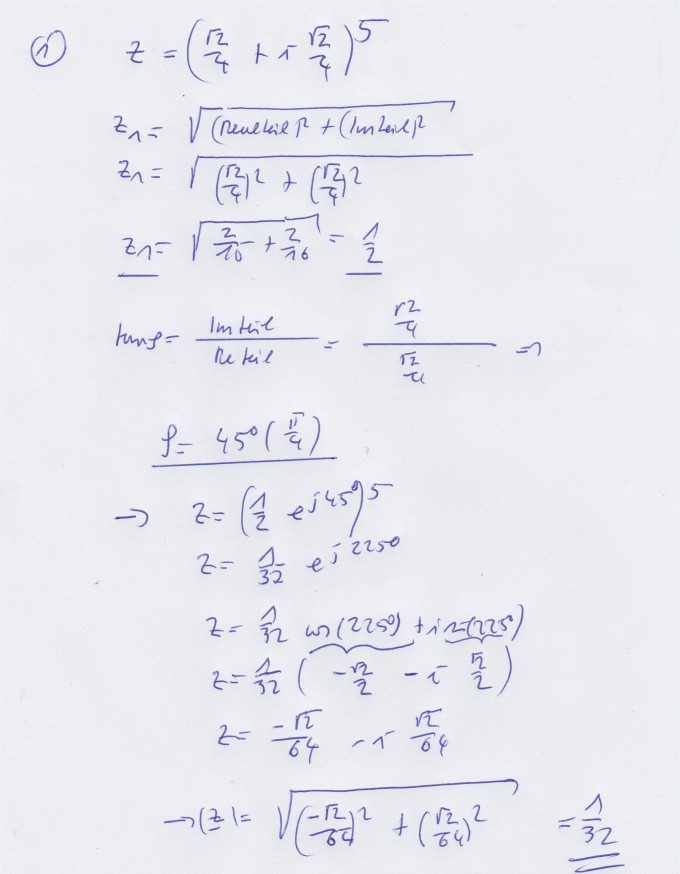 ① z = (√2/4 + i √2/4)^5
z₁ = √((Realteil)² + (Imteil)²)
z₁ = √((√2/4)² + (√2/4)²)
z₁ = √(2/16 + 2/16) = 1/2
tanφ = Imteil/Reteil = (√2/4)/(√2/4) =1
φ = 45° (π/4)
→ z = (1/2 e^j45°)^5
z = 1/32 e^j225°
z = 1/32 cos(225°) + i sin(225°)
z = 1/32 ( -√2/2 - i √2/2 )
z = -√2/64 - i √2/64
→ |z| = √((-√2/64)² + (√2/64)²) = 1/32